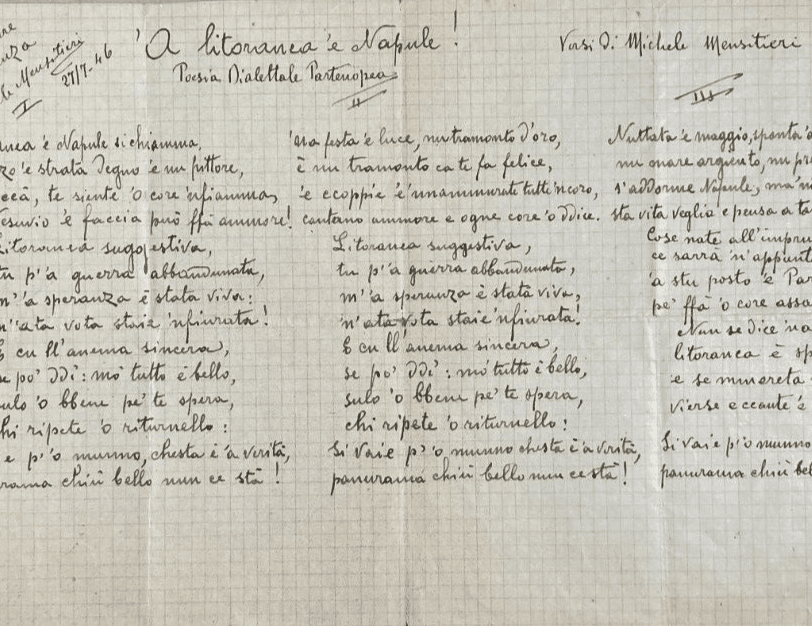 'A litoranea 'e Napule!
Poesia Dialettale Partenopea
Versi di Michele Mensitieri
Mensitieri
27/7-46
I
'e Napule si chiamma,
'e strata degno 'e nu pittore,
te siente 'o core 'nfiamma,
'e faccia però ffà ammore!
Litoranea suggestiva,
tu p'a guerra abbandunata,
m'a speranza è stata viva:
n'ata vota staie 'nfiurata!
E cu ll'anema sincera,
se po' ddì: mò tutto è bello,
sulo 'o bbene pe' te spera,
chi ripete 'o riturnello:
e p'o munno, chesta è 'a verità,
chiù bello nun ce stà!
II
'na festa 'e luce, nu tramonto d'oro,
è nu tramonto ca te fa felice,
'e ccoppie 'e 'nnammurate tutte 'ncoro,
cantano ammore e ogne core 'o ddice.
Litoranea suggestiva,
tu p'a guerra abbandunata,
m'a speranza è stata viva,
n'ata vota staie 'nfiurata!
E cu ll'anema sincera,
se po' ddì: mò tutto è bello,
sulo 'o bbene pe' te spera,
chi ripete 'o riturnello:
Si vaie p' 'o munno chesta è 'a verità,
panurama chiù bello nun ce stà!
III
Nuttata 'e maggio, sponta 'o
nu mare argiento, nu
s'addorme Napule, ma 'n
sta vita veglia e penza a
Cose nate all'impru
ce sarrà 'n'appunt
'a stu posto 'e Par
pe' ffà 'o core assa
Nun se dice 'na
litoranea è sp
e se mmereta
vierse e ccante e
Si vaie p'o munno
panurama chiù bel